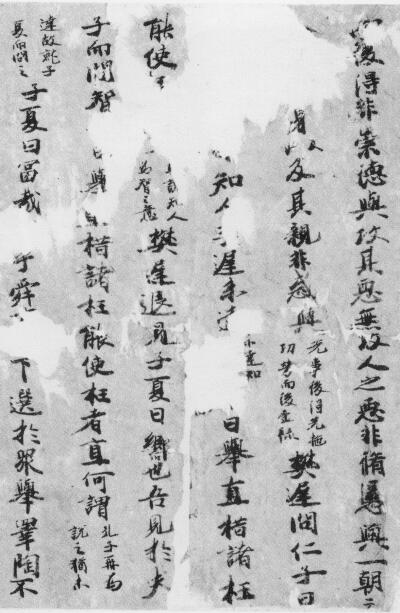 後得非崇德與攻其惡無攻人之惡非脩慝與一朝之
以及其親非惑與先事後得先施功勞而後受祿樊遲問仁子曰
知人樊遲未不達知曰舉直措諸枉
能使知人爲智之意樊遲退見子夏曰鄉也吾見於夫
子而問智曰舉直措諸枉能使枉者直何謂孔子再爲說之猶未
達故就子夏而問之子夏曰富哉于舜下選於眾舉睪陶不